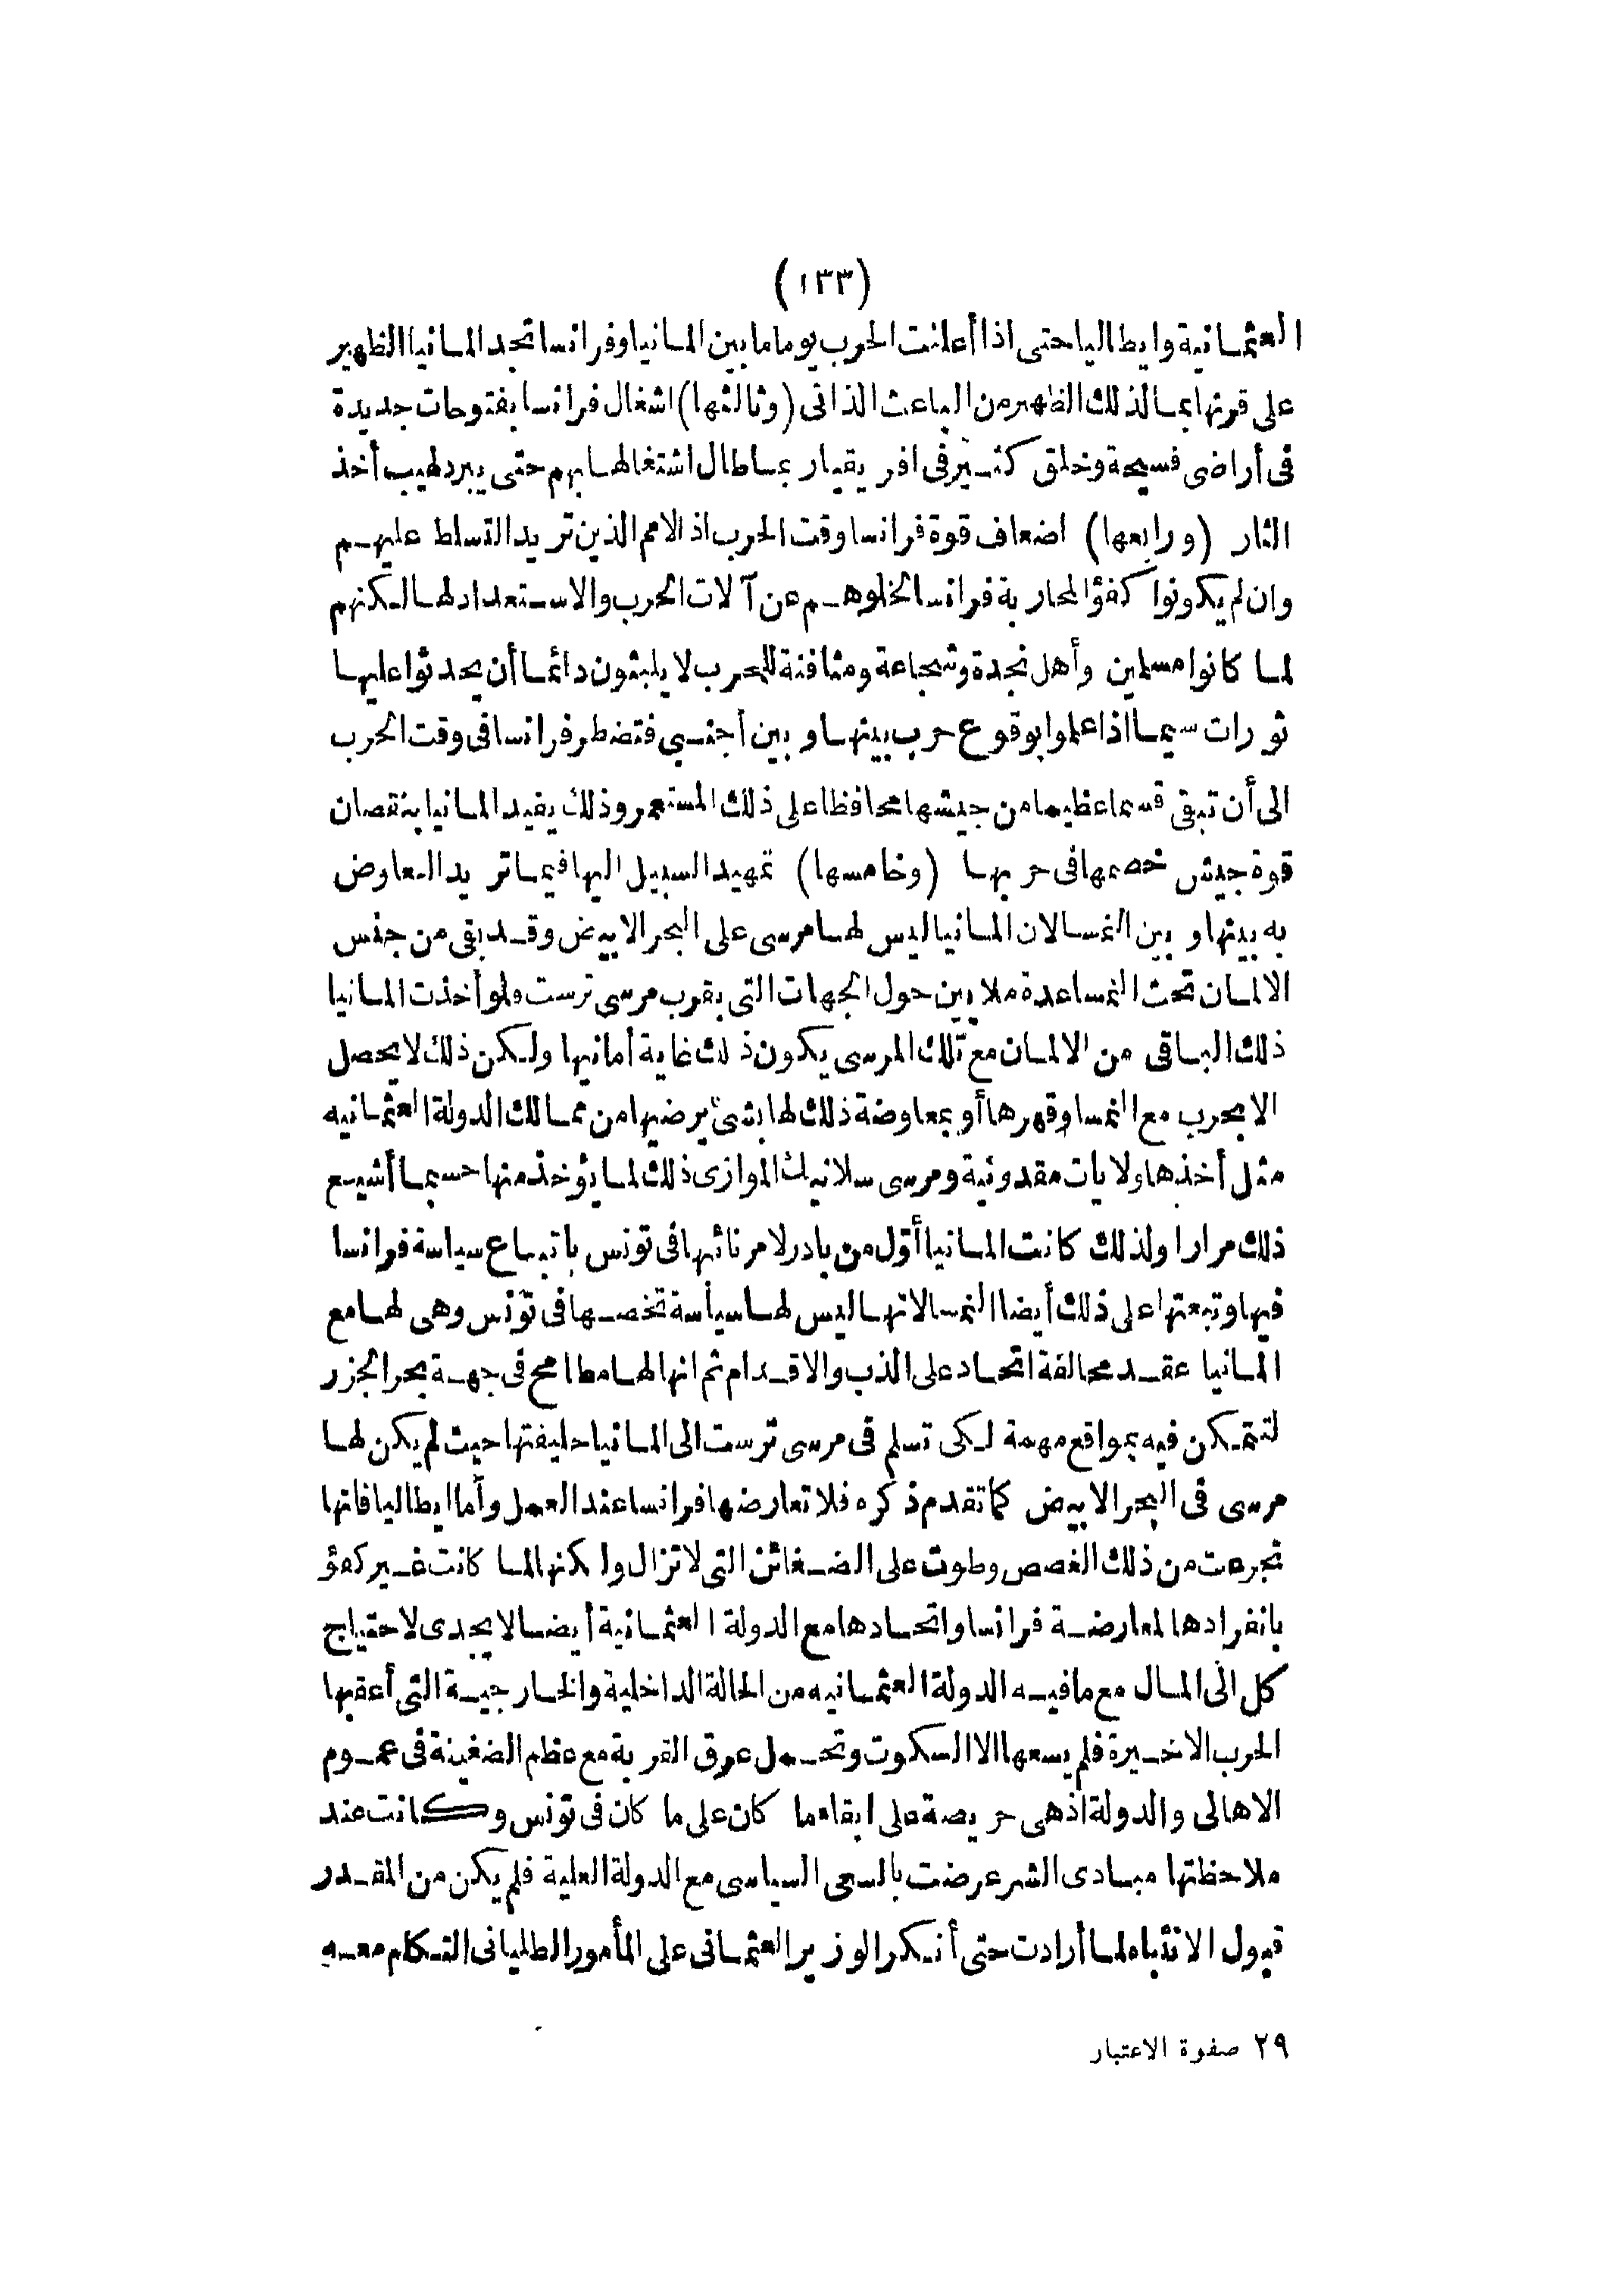 (١٣٣)
العثمانية وايطاليا حتى اذا أعلنت الحرب يوما ما بين المانيا وفرانسا تجد المانيا الظهير
على قرنها بما لذلك الظهير من الباعث الذاتى (وثالثها) اشغال فرانسا بفتوحات جديدة
فى أراضى فسيحة وخلق كثير فى افريقيا ربما طال اشتغالها بهم حتى يبرد لهيب أخذ
الثار (ورابعها) اضعاف قوة فرانسا وقت الحرب اذ الامم الذين تريد التسلط عليهم
وان لم يكونوا كفؤا لمحاربة فرانسا لخلوهم عن آلات الحرب والاستعداد لها لكنهم
لما كانوا مسلمين وأهل نجدة وشجاعة ومثافنة للحرب لا يلبثون دائما أن يحدثوا عليها
ثورات سيما اذا علموا بوقوع حرب بينها وبين أجنبي فتضطر فرانسا فى وقت الحرب
الى أن تبقى قسما عظيما من جيشها محافظا على ذلك المستعمر وذلك يفيد المانيا بنقصان
قوة جيش خصمها فى حربها (وخامسها) تمهيد السبيل اليها فيما تريد التعاوض
به بينها وبين النمسا لان المانيا ليس لها مرسى على البحر الابيض وقد بقى من جنس
الالمان تحت النمسا عدة ملايين حول الجهات التى بقرب مرسى ترست ولو أخذت المانيا
ذلك الباقى من الالمان مع تلك المرسى يكون ذلك غاية أمانيها ولكن ذلك لا يحصل
الا بحرب مع النمسا وقهرها أو بمعاوضة ذلك لها بشئ يرضيها من ممالك الدولة العثمانيه
مثل أخذها ولايات مقدونية ومرسى سلانيك الموازى ذلك لما يؤخذ منها حسبما أشيع
ذلك مرارا ولذلك كانت المانيا أول من بادر لامر نائبها فى تونس باتباع سياسة فرانسا
فيها وتبعتها على ذلك أيضا النمسا لانها ليس لها سياسة تخصها فى تونس وهى لها مع
المانيا عقد محالفة اتحاد على الذب والاقدام ثم انها لها مطامح فى جهة بحر الجزر
لتتمكن فيه بمواقع مهمة لكى تسلم فى مرسى ترست الى المانيا حليفتها حيث لم يكن لها
مرسى فى البحر الابيض كما تقدم ذكره فلا تعارضها فرانسا عند العمل وأما ايطاليا فانها
تجرعت من ذلك الغصص وطوت على الضغائن التى لا تزال ولكنها لما كانت غير كفؤ
بانفرادها لمعارضة فرانسا واتحادها مع الدولة العثمانية أيضا لا يجدى لاحتياج
كل الى المال مع ما فيه الدولة العثمانيه من الحالة الداخلية والخارجية التى أعقبها
الحرب الاخيرة فلم يسعها الا السكوت وتحمل عرق القربة مع عظم الضغينة فى عموم
الاهالى والدولة اذ هى حريصة على ابقاء ما كان على ما كان فى تونس وكانت عند
ملاحظتها مبادى الشر عرضت بالسعى السياسى مع الدولة العلية فلم يكن من المقدر
قبول الانتباه لما أرادت حتى أنكر الوزير العثمانى على المأمور الطليانى التكلم معه
٢٩ صفوة الاعتبار